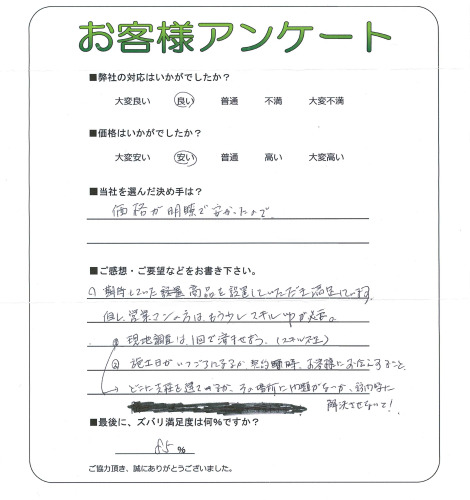 お客様アンケート
■弊社の対応はいかがでしたか？
大変良い 良い 普通 不満 大変不満
■価格はいかがでしたか？
大変安い 安い 普通 高い 大変高い
■当社を選んだ決め手は？
価格が明瞭で安かったので
■ご感想・ご要望などをお書き下さい。
期待していた設置商品を設置していただき満足しています。
但し、営業マンの方はもう少しスキルupが必要。
① 現地調査は1回で済すせよう。(スキル不足)
② 施工日がいつごろになるか、契約時、お客様にお伝えすること
どこに を か、その場所に問題がないか、 内に
解決させないと!
■最後に、ズバリ満足度は何％ですか？
85 %
ご協力頂き、誠にありがとうございました。